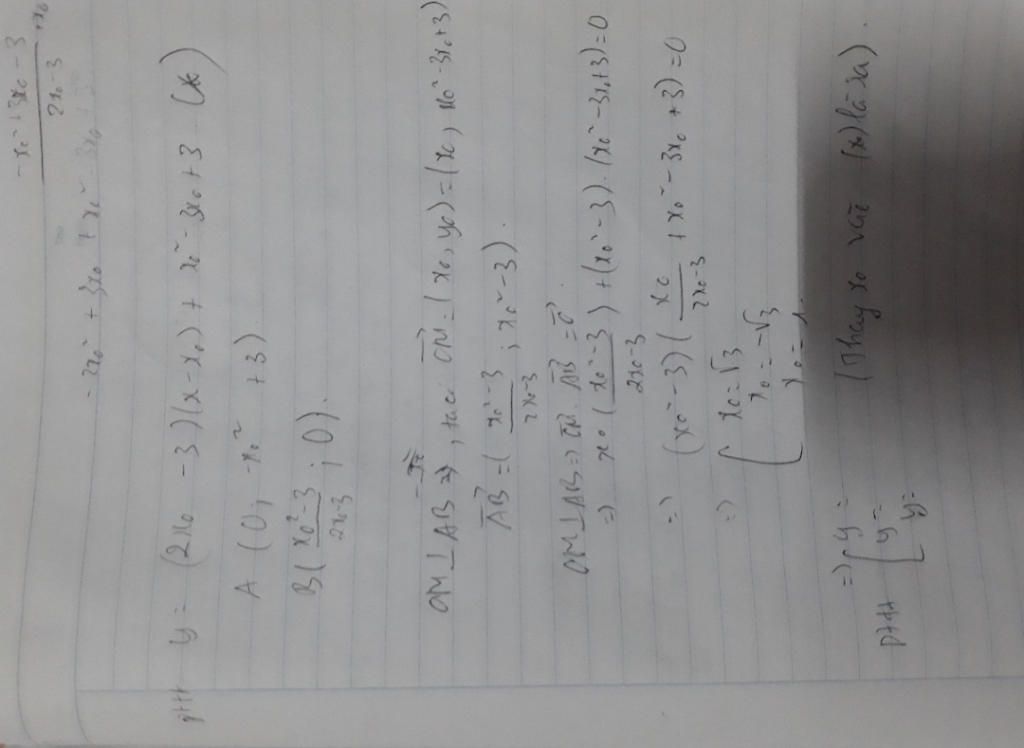 -x₀² + 3x₀ - 3 / 2x₀-3 + x₀
-2x₀² + 3x₀ + x₀² - 3x₀ + 3
pttt y = (2x₀ - 3)(x - x₀) + x₀² - 3x₀ + 3 (*)
A (0; -x₀² + 3)
B( x₀² - 3 / 2x₀-3 ; 0).
OM ⊥ AB ⇒, ta có OM = (x₀, y₀) = (x₀, x₀² - 3x₀ + 3)
AB = ( x₀² - 3 / 2x₀-3 ; x₀² - 3).
OM ⊥ AB => OM . AB = 0
=> x₀ ( x₀² - 3 / 2x₀-3 ) + (x₀² - 3) . (x₀² - 3x₀ + 3) = 0
=> (x₀² - 3) ( x₀ / 2x₀-3 + x₀² - 3x₀ + 3) = 0
=> [ x₀ = √3
x₀ = -√3
x₀ = 1.
=> [ y =
pttt y = (Thay x₀ vào (*) là ra).
y =